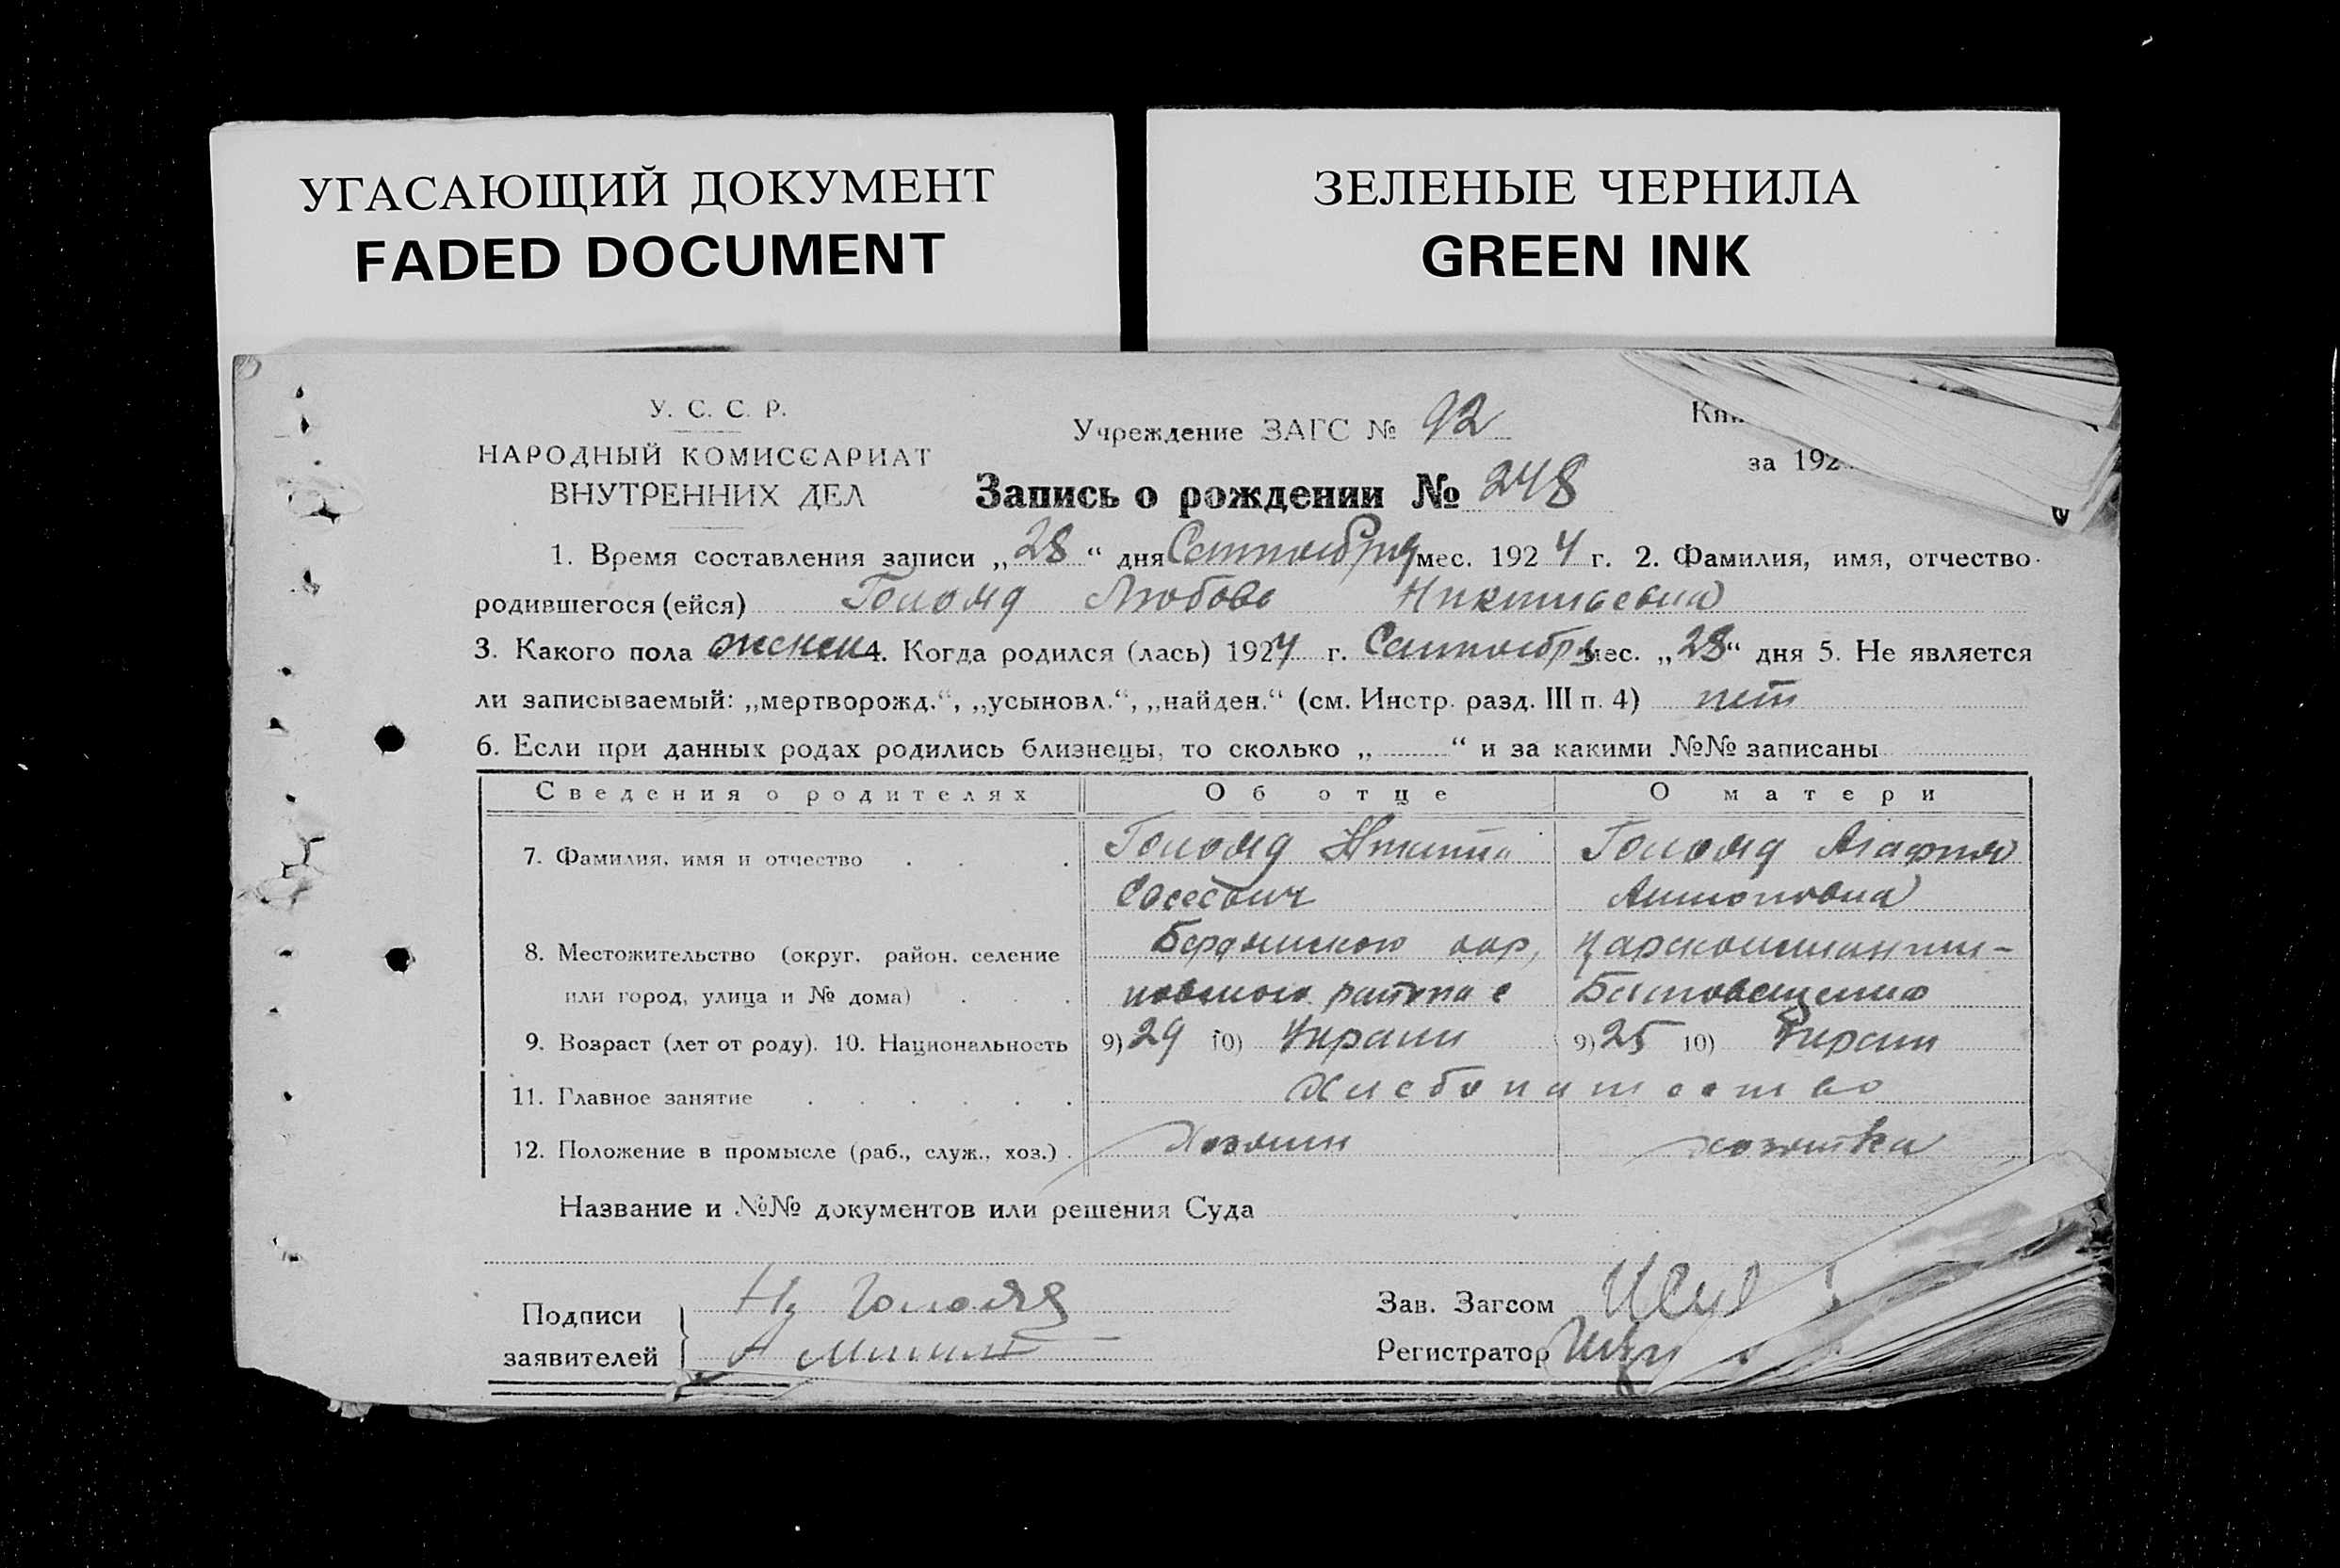 УГАСАЮЩИЙ ДОКУМЕНТ
FADED DOCUMENT
ЗЕЛЕНЫЕ ЧЕРНИЛА
GREEN INK
У. С. С. Р.
НАРОДНЫЙ КОМИССАРИАТ
ВНУТРЕННИХ ДЕЛ
Учреждение ЗАГС № 92
за 192
Запись о рождении № 248
1. Время составления записи „28“ дня Сентября мес. 1924 г. 2. Фамилия, имя, отчество
родившегося (ейся) Любовь Никитьевна
3. Какого пола женск 4. Когда родился (лась) 1924 г. Сентября мес. „28“ дня 5. Не является
ли записываемый: „мертворожд.“, „усыновл.“, „найден.“ (см. Инстр. разд. III п. 4) нет
6. Если при данных родах родились близнецы, то сколько „ “ и за какими №№ записаны
Сведения о родителях Об отце О матери
7. Фамилия, имя и отчество Никита Агафия
Антоновна
8. Местожительство (округ, район, селение Бердянского окр,
или город, улица и № дома) района с Благовещенка
9. Возраст (лет от роду). 10. Национальность 9) 29 10) Украин 9) 25 10) Украин
11. Главное занятие Хлебопашество
12. Положение в промысле (раб., служ., хоз.) Хозяин хозяйка
Название и №№ документов или решения Суда
Подписи
заявителей
Зав. Загсом
Регистратор